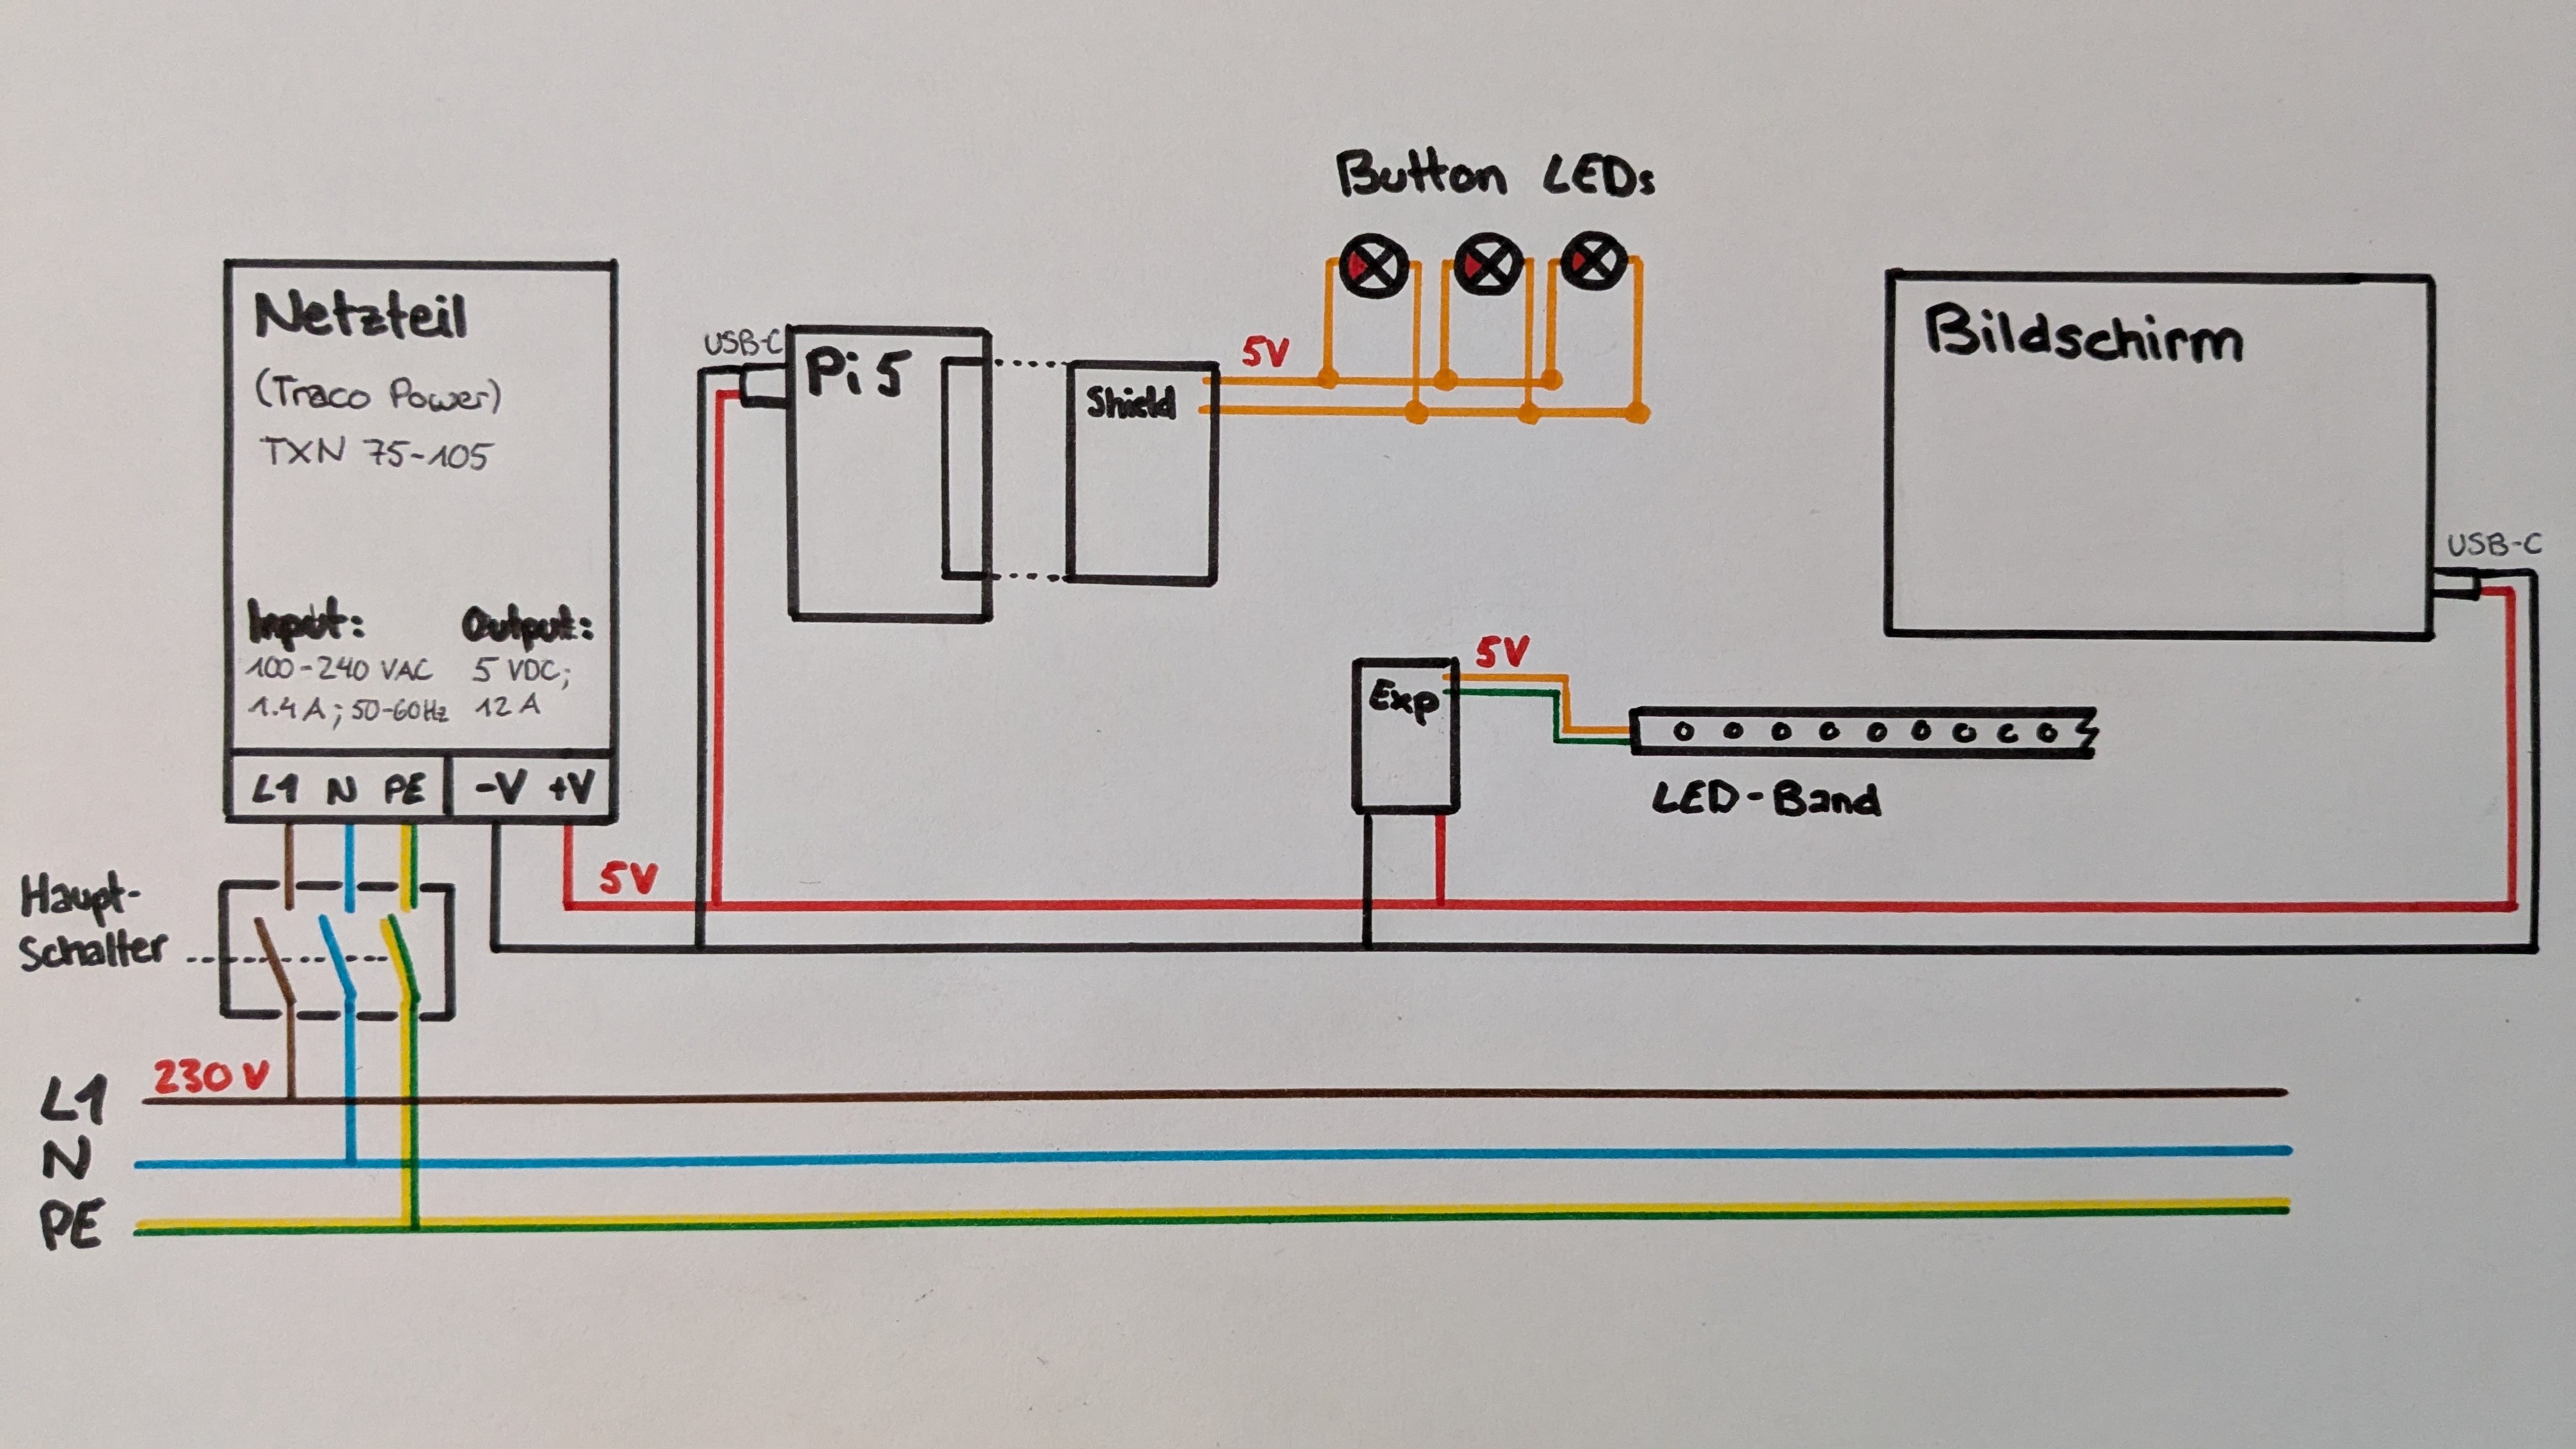 Button LEDs
Netzteil
(Traco Power)
TXN 75-105
Input:
100-240 VAC
1.4A; 50-60Hz
Output:
5 VDC;
12 A
L1 N PE -V +V
USB-C
Pi 5
Shield
5V
Bildschirm
USB-C
Exp
5V
LED-Band
5V
Haupt-
Schalter
230 V
L1
N
PE